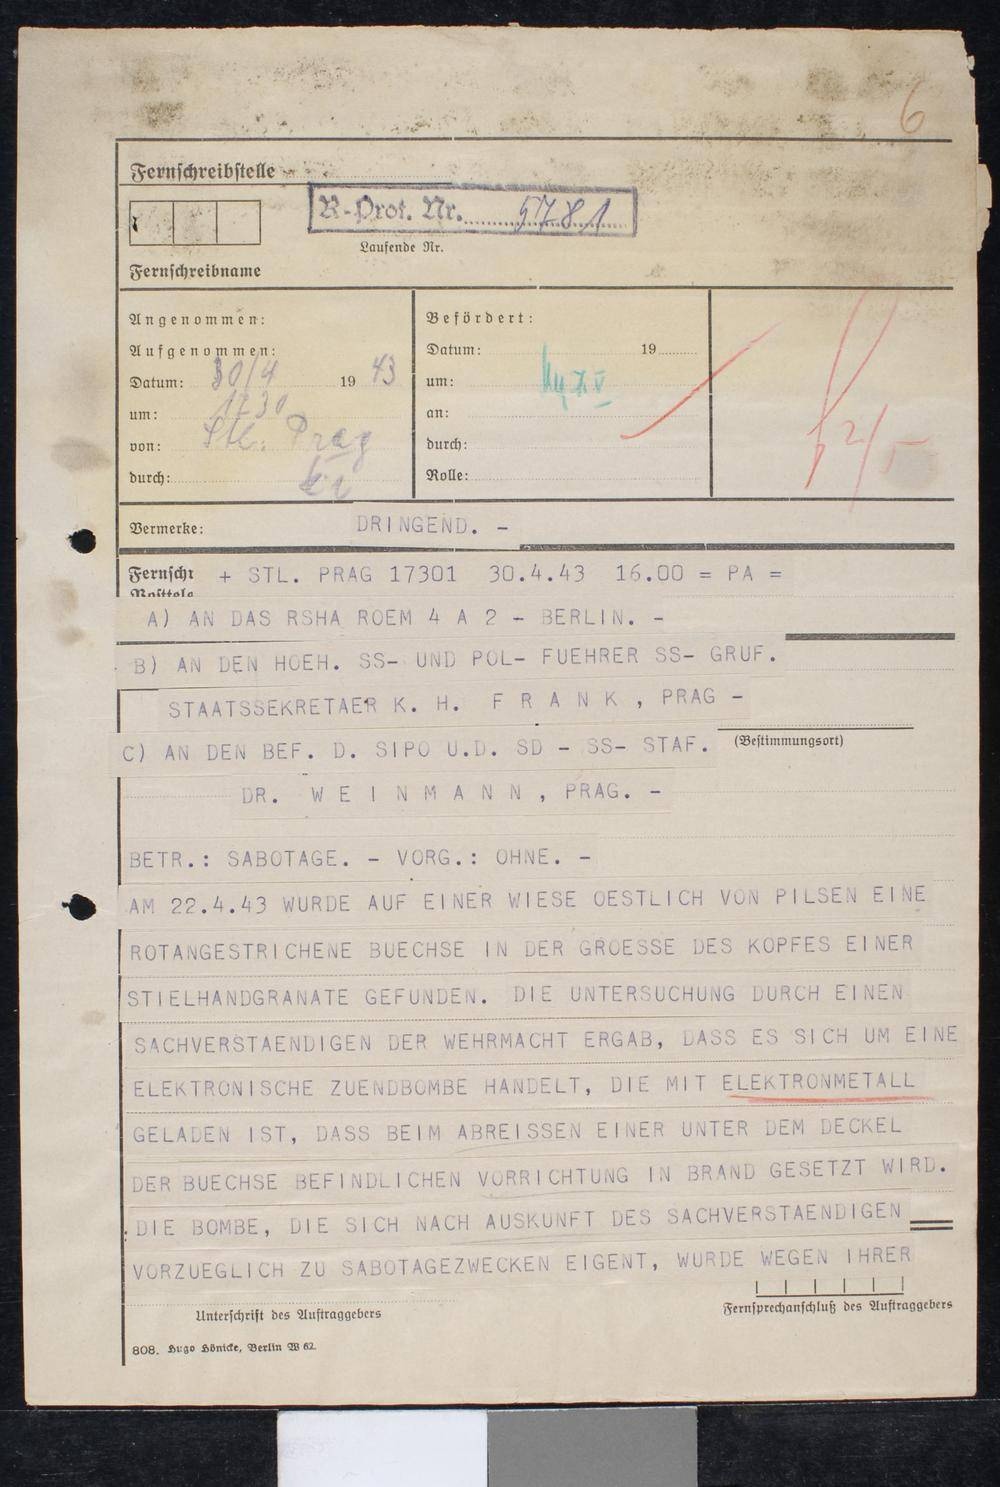 6
Fernschreibstelle
R-Prot. Nr. 5781
Laufende Nr.
Fernschreibname
Angenommen:
Aufgenommen:
Datum: 30/4 19 43
um: 1730
von: Stl. Prag
durch:
Befördert:
Datum: 19
um:
an:
durch:
Rolle:
Vermerke: DRINGEND. -
Fernschr + STL. PRAG 17301 30.4.43 16.00 = PA =
A) AN DAS RSHA ROEM 4 A 2 - BERLIN. -
B) AN DEN HOEH. SS- UND POL- FUEHRER SS- GRUF.
STAATSSEKRETAER K. H. F R A N K , PRAG -
C) AN DEN BEF. D. SIPO U.D. SD - SS- STAF.
(Bestimmungsort)
DR. W E I N M A N N , PRAG. -
BETR.: SABOTAGE. - VORG.: OHNE. -
AM 22.4.43 WURDE AUF EINER WIESE OESTLICH VON PILSEN EINE
ROTANGESTRICHENE BUECHSE IN DER GROESSE DES KOPFES EINER
STIELHANDGRANATE GEFUNDEN. DIE UNTERSUCHUNG DURCH EINEN
SACHVERSTAENDIGEN DER WEHRMACHT ERGAB, DASS ES SICH UM EINE
ELEKTRONISCHE ZUENDBOMBE HANDELT, DIE MIT ELEKTRONMETALL
GELADEN IST, DASS BEIM ABREISSEN EINER UNTER DEM DECKEL
DER BUECHSE BEFINDLICHEN VORRICHTUNG IN BRAND GESETZT WIRD.
DIE BOMBE, DIE SICH NACH AUSKUNFT DES SACHVERSTAENDIGEN
VORZUEGLICH ZU SABOTAGEZWECKEN EIGENT, WURDE WEGEN IHRER
Unterschrift des Auftraggebers
Fernsprechanschluß des Auftraggebers
808. Hugo Hönicke, Berlin W 62.